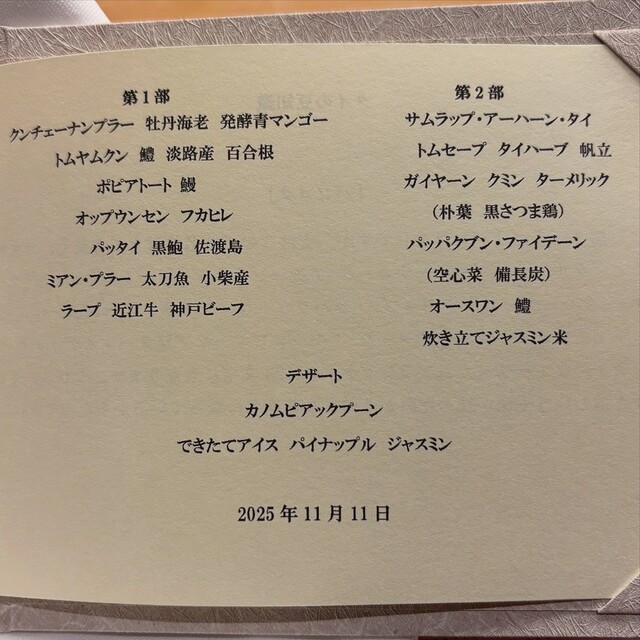 第1部
クンチェーナンプラー 牡丹海老 発酵青マンゴー
トムヤムクン 鱧 淡路産 百合根
ポピアトート 鰻
オップウンセン フカヒレ
パッタイ 黒鮑 佐渡島
ミアン・プラー 太刀魚 小柴産
ラープ 近江牛 神戸ビーフ
第2部
サムラップ・アーハーン・タイ
トムセープ タイハーブ 帆立
ガイヤーン クミン ターメリック
(朴葉 黒さつま鶏)
パッパクブン・ファイデーン
(空心菜 備長炭)
オースワン 鱧
炊き立てジャスミン米
デザート
カノムピアックプーン
できたてアイス パイナップル ジャスミン
2025年11月11日